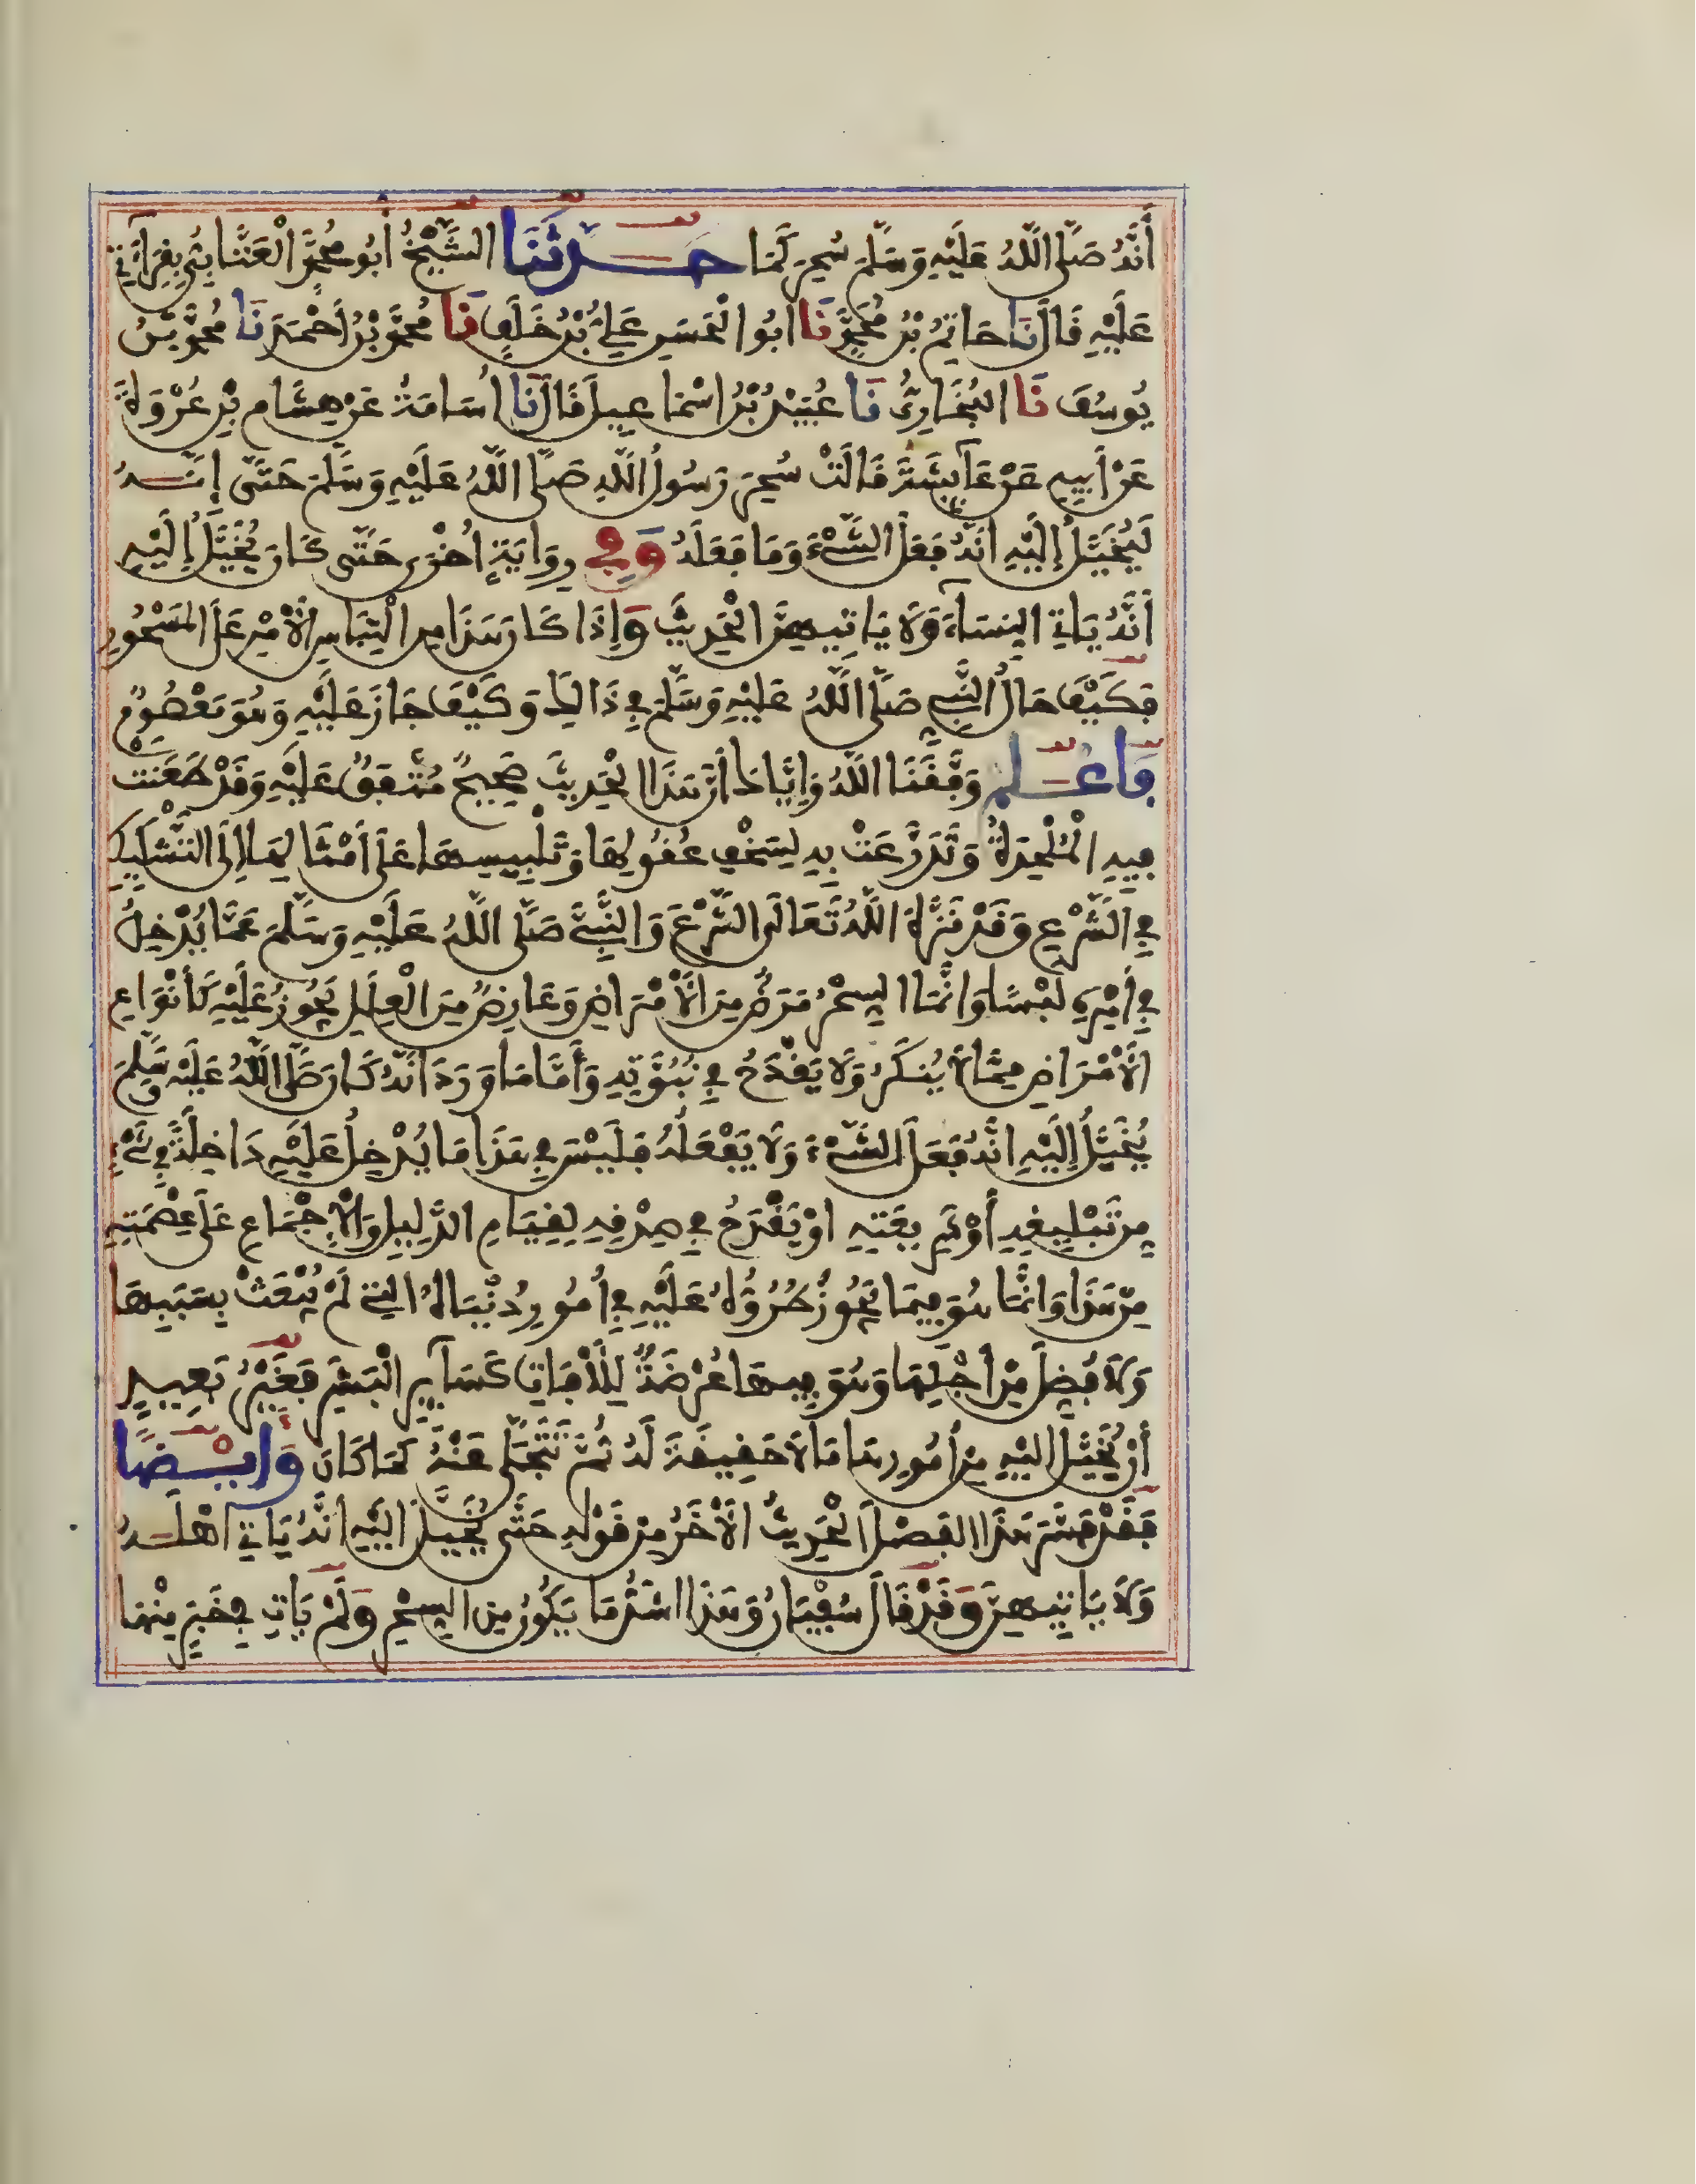 أَنَّهُ صَلَّى اللَّهُ عَلَيْهِ وَسَلَّمَ سُحِرَ كَمَا حَدَّثَنَا الشَّيْخُ أَبُو مُحَمَّدٍ الْعَتَّابِيُّ بِقِرَاءَتِي
عَلَيْهِ قَالَ نَا حَاتِمُ بْنُ مُحَمَّدٍ نَا أَبُو الْحَسَنِ عَلِيُّ بْنُ خَلَفٍ نَا مُحَمَّدُ بْنُ أَحْمَدَ نَا مُحَمَّدُ بْنُ
يُوسُفَ نَا الْبُخَارِيُّ نَا عُبَيْدُ بْنُ اسْمَاعِيلَ قَالَ نَا اُسَامَةُ عَنْ هِشَامِ بْنِ عُرْوَةَ
عَنْ أَبِيهِ عَنْ عَائِشَةَ قَالَتْ سُحِرَ رَسُولُ اللَّهِ صَلَّى اللَّهُ عَلَيْهِ وَسَلَّمَ حَتَّى إِنَّهُ
لَيُخَيَّلُ إِلَيْهِ انَّهُ فَعَلَ الشَّيْءَ وَمَا فَعَلَهُ وَفِي رِوَايَةٍ اُخْرَى حَتَّى كَانَ يُخَيَّلُ إِلَيْهِ
أَنَّهُ يَاتِي النِّسَآءَ وَلَا يَاتِيهِنَّ الْحَدِيثَ وَإِذَا كَانَ هَذَا مِنِ الْتِبَاسِ الْأَمْرِ عَلَى الْمَسْحُورِ
فَكَيْفَ حَالُ النَّبِيِّ صَلَّى اللَّهُ عَلَيْهِ وَسَلَّمَ فِي ذَالِكَ وَكَيْفَ جَازَ عَلَيْهِ وَهُوَ مَعْصُومٌ
فَاعْلَمْ وَفَّقَنَا اللَّهُ وَإِيَّاكَ أَنَّ هَذَا الْحَدِيثَ صَحِيحٌ مُتَّفَقٌ عَلَيْهِ وَقَدْ طَعَنَتْ
فِيهِ الْمُلْحِدَةُ وَتَدَرَّعَتْ بِهِ لِسُخْفِ عُقُولِهَا وَتَلْبِيسِهَا عَلَى أَمْثَالِهَا إِلَى التَّشْكِيكِ
فِي الشَّرْعِ وَقَدْ نَزَّهَ اللَّهُ تَعَالَى الشَّرْعَ وَالنَّبِيَّ صَلَّى اللَّهُ عَلَيْهِ وَسَلَّمَ عَمَّا يُدْخِلُ
فِي أَمْرِهِ لَبْسًا وَانَّمَا السِّحْرُ مَرَضٌ مِنَ الْأَمْرَاضِ وَعَارِضٌ مِنَ الْعِلَلِ يَجُوزُ عَلَيْهِ كَأَنْوَاعِ
الْأَمْرَاضِ مِمَّا لَا يُنْكَرُ وَلَا يَقْدَحُ فِي نُبُوَّتِهِ وَأَمَّا مَا وَرَدَ انَّهُ كَانَ صَلَّى اللَّهُ عَلَيْهِ وَسَلَّمَ
يُخَيَّلُ إِلَيْهِ انَّهُ فَعَلَ الشَّيْءَ وَلَا يَفْعَلُهُ فَلَيْسَ فِي هَذَا مَا يُدْخِلُ عَلَيْهِ دَاخِلَةً فِي شَيْءٍ
مِنْ تَبْلِيغِهِ أَوْ شَرِيعَتِهِ اوْ يَقْدَحُ فِي صِدْقِهِ لِقِيَامِ الدَّلِيلِ وَالْإِجْمَاعِ عَلَى عِصْمَتِهِ
مِنْ هَذَا وَانَّمَا هُوَ فِيمَا يَجُوزُ طُرُوُّهُ عَلَيْهِ فِي أُمُورِ دُنْيَاهُ الَّتِي لَمْ يُبْعَثْ بِسَبَبِهَا
وَلَا فُضِّلَ مِنْ أَجْلِهَا وَهُوَ فِيهَا عُرْضَةٌ لِلْأَفَاتِ كَسَآئِرِ الْبَشَرِ فَغَيْرُ بَعِيدٍ
أَنْ يُخَيَّلَ إِلَيْهِ مِنْ أُمُورِهَا مَا لَا حَقِيقَةَ لَهُ ثُمَّ تَتَجَلَّى عَنْهُ كَمَا كَانَ وَأَيْضًا
فَقَدْ فَسَّرَ هَذَا الْفَصْلَ الْحَدِيثُ الْأَخَرُ مِنْ قَوْلِهِ حَتَّى يُخَيَّلَ إِلَيْهِ انَّهُ يَاتِي أَهْلَهُ
وَلَا يَاتِيهِنَّ وَقَدْ قَالَ سُفْيَانُ وَهَذَا اشَدُّ مَا يَكُونُ مِنَ السِّحْرِ وَلَمْ يَاتِ فِي خَبَرٍ مِنْهَا